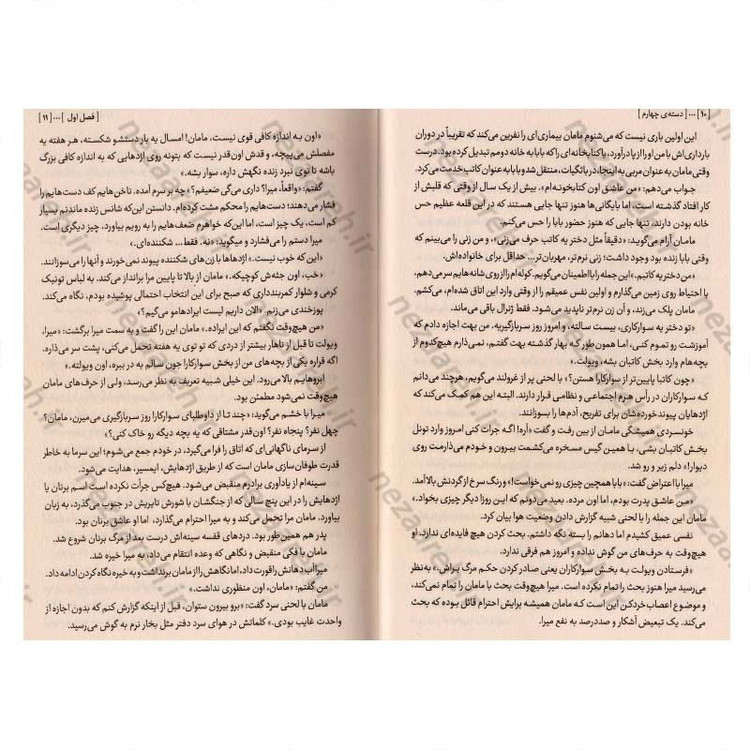 ۱۰ | ... | دسته‌ی چهارم
این اولین باری نیست که می‌شنوم مامان بیماری‌ای را نفرین می‌کند که تقریباً در دوران
بارداری‌اش با من او را از پا درآورد، یا کتابخانه‌ای را که بابا به خانه دومم تبدیل کرده بود. درست
وقتی مامان به عنوان مربی به اینجا، در باثگیات، منتقل شد و بابا به عنوان کاتب خدمت می‌کرد.
جواب می‌دهم: «من عاشق اون کتابخونه‌م». بیش از یک سال از وقتی که قلبش از
کار افتاد گذشته است، اما بایگانی‌ها هنوز تنها جایی هستند که در این قلعه عظیم حس
خانه بودن دارند، تنها جایی که هنوز حضور بابا را حس می‌کنم.
مامان آرام می‌گوید: «دقیقاً مثل دختر یه کاتب حرف می‌زنی» و من زنی را می‌بینم که
وقتی بابا زنده بود وجود داشت؛ زنی نرم‌تر، مهربان‌تر... حداقل برای خانواده‌اش.
«من دختر یه کاتبم». این جمله را با اطمینان می‌گویم. کوله‌ام را از روی شانه‌هایم سر می‌دهم،
با احتیاط روی زمین می‌گذارم و اولین نفس عمیقم را از وقتی وارد این اتاق شده‌ام، می‌کشم.
مامان پلک می‌زند، و آن زن نرم‌تر ناپدید می‌شود. فقط ژنرال باقی می‌ماند.
«تو دختر یه سوارکاری، بیست سالته، و امروز روز سربازگیریه. من بهت اجازه دادم که
آموزشت رو تموم کنی، اما همون طور که بهار گذشته بهت گفتم، نمی‌ذارم هیچ‌کدوم از
بچه‌هام وارد بخش کاتبان بشه، ویولت.»
«چون کاتبا پایین‌تر از سوارکارا هستن؟» با لحنی پر از غرولند می‌گویم، هرچند می‌دانم
که سوارکاران در رأس هرم اجتماعی و نظامی قرار دارند. البته این هم کمک می‌کند که
اژدهایان پیوندخورده‌شان برای تفریح، آدم‌ها را بسوزانند.
خونسردی همیشگی مامان از بین رفت و گفت: «آره! اگه جرات کنی امروز وارد تونل
بخش کاتبان بشی، با همین گیس مسخره می‌کشمت بیرون و خودم می‌ذارمت روی
دیوار!» دلم زیر و رو شد.
میرا با اعتراض گفت: «بابا همچین چیزی رو نمی‌خواست!» و رنگ سرخ از گردنش بالا آمد.
«من عاشق پدرت بودم، اما اون مرده. بعید می‌دونم که این روزا دیگر چیزی بخواد.»
مامان این جمله را با لحنی شبیه گزارش دادن وضعیت هوا بیان کرد.
نفسی عمیق کشیدم اما دهانم را بسته نگه داشتم. بحث کردن هیچ فایده‌ای ندارد. او
هیچ‌وقت به حرف‌های من گوش نداده و امروز هم فرقی ندارد.
«فرستادن ویولت به بخش سوارکاران یعنی صادر کردن حکم مرگ براش.» به نظر
می‌رسید میرا هنوز بحث را تمام نکرده است. میرا هیچ‌وقت بحث با مامان را تمام نمی‌کند،
و موضوع اعصاب خردکن این است که مامان همیشه برایش احترام قائل بوده که بحث
می‌کند. یک تبعیض آشکار و صددرصد به نفع میرا.
| فصل اول | ... | ۱۱
«اون به اندازه کافی قوی نیست، مامان! امسال یه بار دستشو شکسته، هر هفته یه
مفصلش می‌پیچه، و قدش اون‌قدر نیست که بتونه روی اژدهایی که به اندازه کافی بزرگ
باشه تا توی نبرد زنده نگهش داره، سوار بشه.»
گفتم: «واقعاً، میرا؟ داری می‌گی ضعیفم؟» چه بر سرم آمده. ناخن‌هایم کف دست‌هایم را
فشار می‌دهند؛ دست‌هایم را محکم مشت کرده‌ام. دانستن این‌که شانس زنده ماندنم بسیار
کم است، یک چیز است، اما این‌که خواهرم ضعف‌هایم را به رویم بیاورد، چیز دیگری است.
میرا دستم را می‌فشارد و می‌گوید: «نه. فقط... شکننده‌ای.»
«این که خوب نیست.» اژدهاها با زن‌های شکننده پیوند نمی‌خورند و آنها را می‌سوزانند.
«خب، اون جثه‌ش کوچیکه.» مامان از بالا تا پایین مرا برانداز می‌کند. به لباس تونیک
کرمی و شلوار کمربندداری که صبح برای این انتخاب احتمالی پوشیده بودم، نگاه می‌کند.
پوزخندی می‌زنم. «الان داریم لیست ایرادهامو می‌گیم؟»
«من هیچ‌وقت نگفتم که این ایراده.» مامان این را گفت و به سمت میرا برگشت: «میرا،
ویولت تا قبل از ناهار بیشتر از دردی که تو توی یه هفته تحمل می‌کنی، پشت سر می‌ذاره.
اگه قراره یکی از بچه‌های من از بخش سوارکارا جون سالم به در ببره، اون ویولته.»
ابروهایم بالا می‌رود. این خیلی شبیه تعریف به نظر می‌رسد، ولی از حرف‌های مامان
هیچ‌وقت نمی‌شود مطمئن بود.
میرا با خشم می‌گوید: «چند تا از داوطلبای سوارکارا روز سربازگیری می‌میرن، مامان؟
چهل نفر؟ پنجاه نفر؟ اون‌قدر مشتاقی که یه بچه دیگه رو خاک کنی؟»
از سرمای ناگهانی‌ای که اتاق را فرا می‌گیرد، در خودم جمع می‌شوم؛ این سرما به خاطر
قدرت طوفان‌سازی مامان است که از طریق اژدهایش، ایمسیر، هدایت می‌شود.
سینه‌ام از یادآوری برادرم منقبض می‌شود. هیچ‌کس جرأت نکرده است اسم برنان یا
اژدهایش را در این پنج سالی که از جنگشان با شورش تایریش در جنوب می‌گذرد، به زبان
بیاورد. مامان مرا تحمل می‌کند و به میرا احترام می‌گذارد، اما او عاشق برنان بود.
پدر هم همین‌طور بود. دردهای قفسه سینه‌اش درست بعد از مرگ برنان شروع شد.
مامان با فکی منقبض و نگاهی که وعده انتقام می‌داد، به میرا خیره شد.
میرا آب دهانش را قورت داد، اما نگاهش را از مامان برنداشت و به خیره نگاه کردن ادامه داد.
من گفتم: «مامان، اون منظوری نداشت.»
مامان با لحنی سرد گفت: «برو بیرون ستوان، قبل از اینکه گزارش کنم که بدون اجازه از
واحدت غایب بودی.» کلماتش در هوای سرد دفتر مثل بخار نرم به گوش می‌رسید.
nezaareh.ir